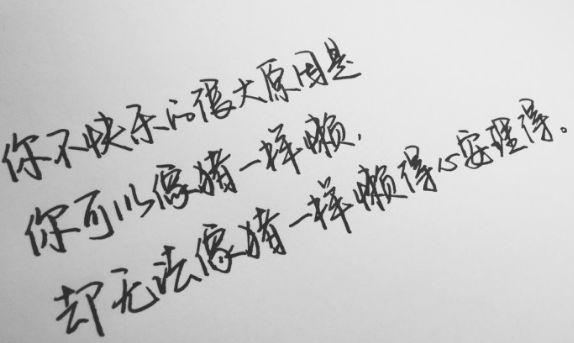 你不快乐的很大原因是
你可以像猪一样懒,
却无法像猪一样懒得心安理得。